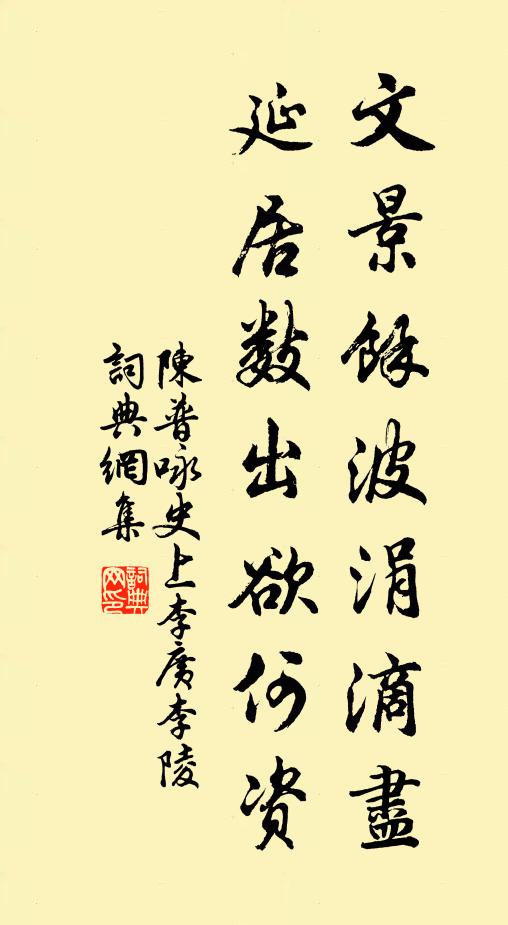 文景餘波涓滴盡
延居數出欲何資
陳普咏史上李廣李陵
詞典網集
詞典網印